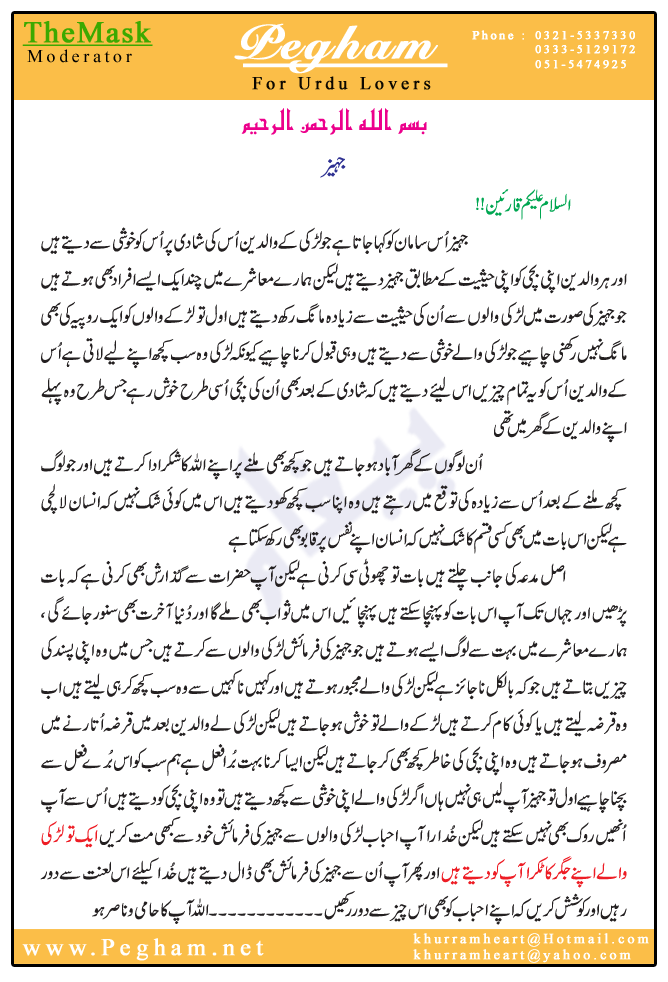 TheMask
Moderator
Pegham
For Urdu Lovers
Phone : 0321-5337330
0333-5129172
051-5474925
بسم الله الرحمن الرحیم
جہیز
السلام علیکم قارئین!!
جہیز اُس سامان کو کہا جاتا ہے جو لڑکی کے والدین اُس کی شادی پر اُس کو خوشی سے دیتے ہیں
اور ہر والدین اپنی بچی کو اپنی حیثیت کے مطابق جہیز دیتے ہیں لیکن ہمارے معاشرے میں چند ایک ایسے افراد بھی ہوتے ہیں
جو جہیز کی صورت میں لڑکی والوں سے اُن کی حیثیت سے زیادہ مانگ رکھ دیتے ہیں اول تو لڑکے والوں کو ایک روپیہ کی بھی
مانگ نہیں رکھنی چاہیے جو لڑکی والے خوشی سے دیتے ہیں وہی قبول کرنا چاہیے کیونکہ لڑکی وہ سب کچھ اپنے لیے لاتی ہے اُس
کے والدین اُس کو یہ تمام چیزیں اس لیئے دیتے ہیں کہ شادی کے بعد بھی اُن کی بچی اُسی طرح خوش رہے جس طرح وہ پہلے
اپنے والدین کے گھر میں تھی
اُن لوگوں کے گھر آباد ہو جاتے ہیں جو کچھ بھی ملنے پر اپنے اللہ کا شکر ادا کرتے ہیں اور جو لوگ
کچھ ملنے کے بعد اُس سے زیادہ کی توقع میں رہتے ہیں وہ اپنا سب کچھ کھو دیتے ہیں اس میں کوئی شک نہیں کہ انسان لالچی
ہے لیکن اس بات میں بھی کسی قسم کا شک نہیں کہ انسان اپنے نفس پر قابو بھی رکھ سکتا ہے
اصل مدعہ کی جانب چلتے ہیں بات تو چھوٹی سی کرنی ہے لیکن آپ حضرات سے گذارش بھی کرنی ہے کہ بات
پڑھیں اور جہاں تک آپ اس بات کو پہنچا سکتے ہیں پہنچائیں اس میں ثواب بھی ملے گا اور دُنیا آخرت بھی سنور جائے گی ،
ہمارے معاشرے میں بہت سے لوگ ایسے ہوتے ہیں جو جہیز کی فرمائش لڑکی والوں سے کرتے ہیں جس میں وہ اپنی پسند کی
چیزیں بتاتے ہیں جو کہ بالکل ناجائز ہے لیکن لڑکی والے مجبور ہوتے ہیں اور کہیں نا کہیں سے وہ سب کچھ کر ہی لیتے ہیں اب
وہ قرضہ لیتے ہیں یا کوئی کام کرتے ہیں لڑکے والے تو خوش ہو جاتے ہیں لیکن لڑکی لے والدین بعد میں قرضہ اُتارنے میں
مصروف ہو جاتے ہیں وہ اپنی بچی کی خاطر کچھ بھی کر جاتے ہیں لیکن ایسا کرنا بہت بُرا فعل ہے ہم سب کو اس بُرے فعل سے
بچنا چاہیے اول تو جہیز آپ لیں ہی نہیں ہاں اگر لڑکی والے اپنی خوشی سے کچھ دیتے ہیں تو وہ اپنی بچی کو دیتے ہیں اُس سے آپ
اُنھیں روک بھی نہیں سکتے ہیں لیکن خُدارا آپ احباب لڑکی والوں سے جہیز کی فرمائش خود سے کبھی مت کریں ایک تو لڑکی
والے اپنے جگر کا ٹکرا آپ کو دیتے ہیں اور پھر آپ اُن سے جہیز کی فرمائش بھی ڈال دیتے ہیں خُدا کیلئے اس لعنت سے دور
رہیں اور کوشش کریں کہ اپنے احباب کو بھی اس چیز سے دور رکھیں ۔۔۔۔۔۔۔۔۔۔۔۔ اللہ آپ کا حامی و ناصر ہو
پیغام
www.Pegham.net
khurramheart@Hotmail.com
khurramheart@yahoo.com